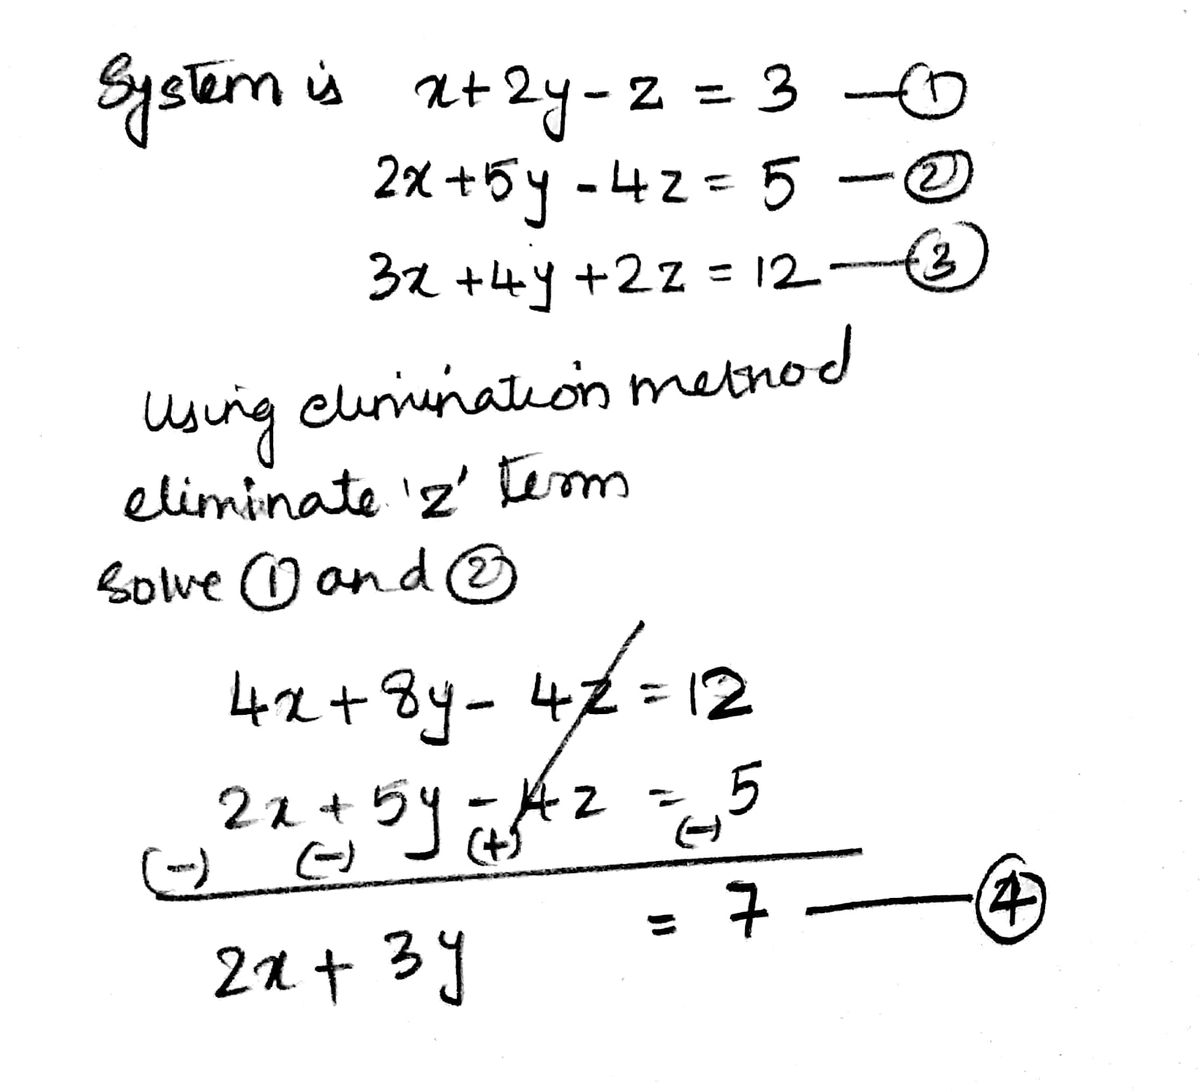 System is x+2y-z = 3 —①
2x+5y-4z = 5 —②
3x+4y+2z = 12 —③
Using elimination method
eliminate 'z' term
Solve ① and ②
4x+8y-4z = 12
2x+5y-4z = 5
(-) (-) (+) (-)
2x+3y = 7 —④